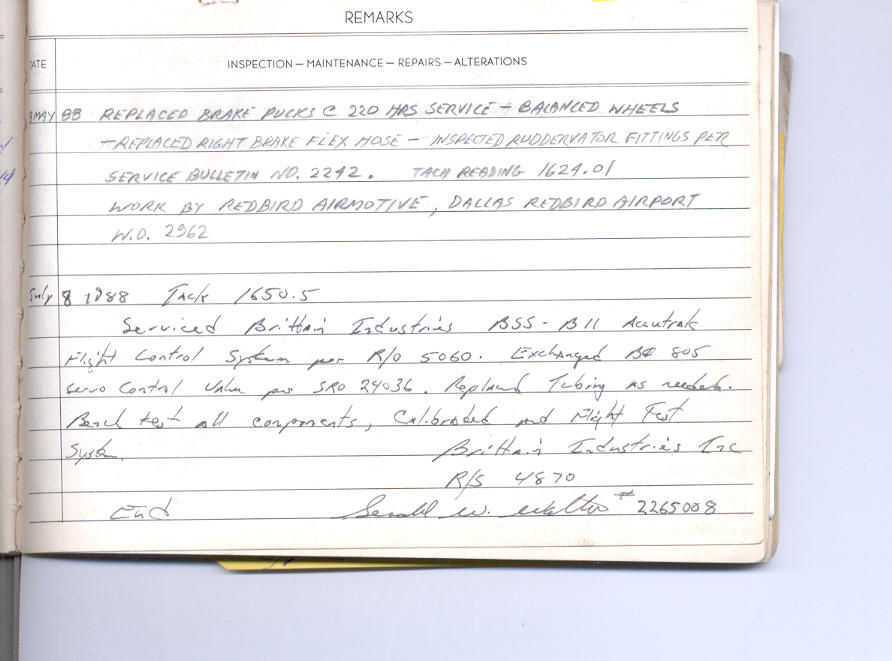 REMARKS
DATE
INSPECTION — MAINTENANCE — REPAIRS — ALTERATIONS
MAY 88 REPLACED BRAKE PUCKS @ 220 HRS SERVICE — BALANCED WHEELS
— REPLACED RIGHT BRAKE FLEX HOSE — INSPECTED RUDDERVATOR FITTINGS PER
SERVICE BULLETIN NO. 2242. TACH READING 1624.01
WORK BY REDBIRD AIRMOTIVE, DALLAS REDBIRD AIRPORT
W.O. 2962
July 8 1988 Tach 1650.5
Serviced Brittain Industries BSS-B11 Accutrak
Flight Control System per R/O 5060. Exchanged 805
Servo Control Valve per SRO 24036. Replaced Tubing as needed.
Bench test all components, Calibrated and Flight Test
System.
Brittain Industries Inc
R/S 4870
End
W. # 2265008